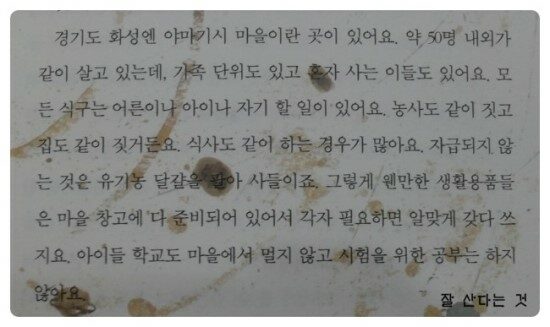 경기도 화성엔 야마기시 마을이란 곳이 있어요. 약 50명 내외가
같이 살고 있는데, 가족 단위도 있고 혼자 사는 이들도 있어요. 모
든 식구는 어른이나 아이나 자기 할 일이 있어요. 농사도 같이 짓고
집도 같이 짓거든요. 식사도 같이 하는 경우가 많아요. 자급되지 않
는 것은 유기농 달걀을 팔아 사들이죠. 그렇게 웬만한 생활용품들
은 마을 창고에 다 준비되어 있어서 각자 필요하면 알맞게 갖다 쓰
지요. 아이들 학교도 마을에서 멀지 않고 시험을 위한 공부는 하지
않아요.
잘 산다는 것